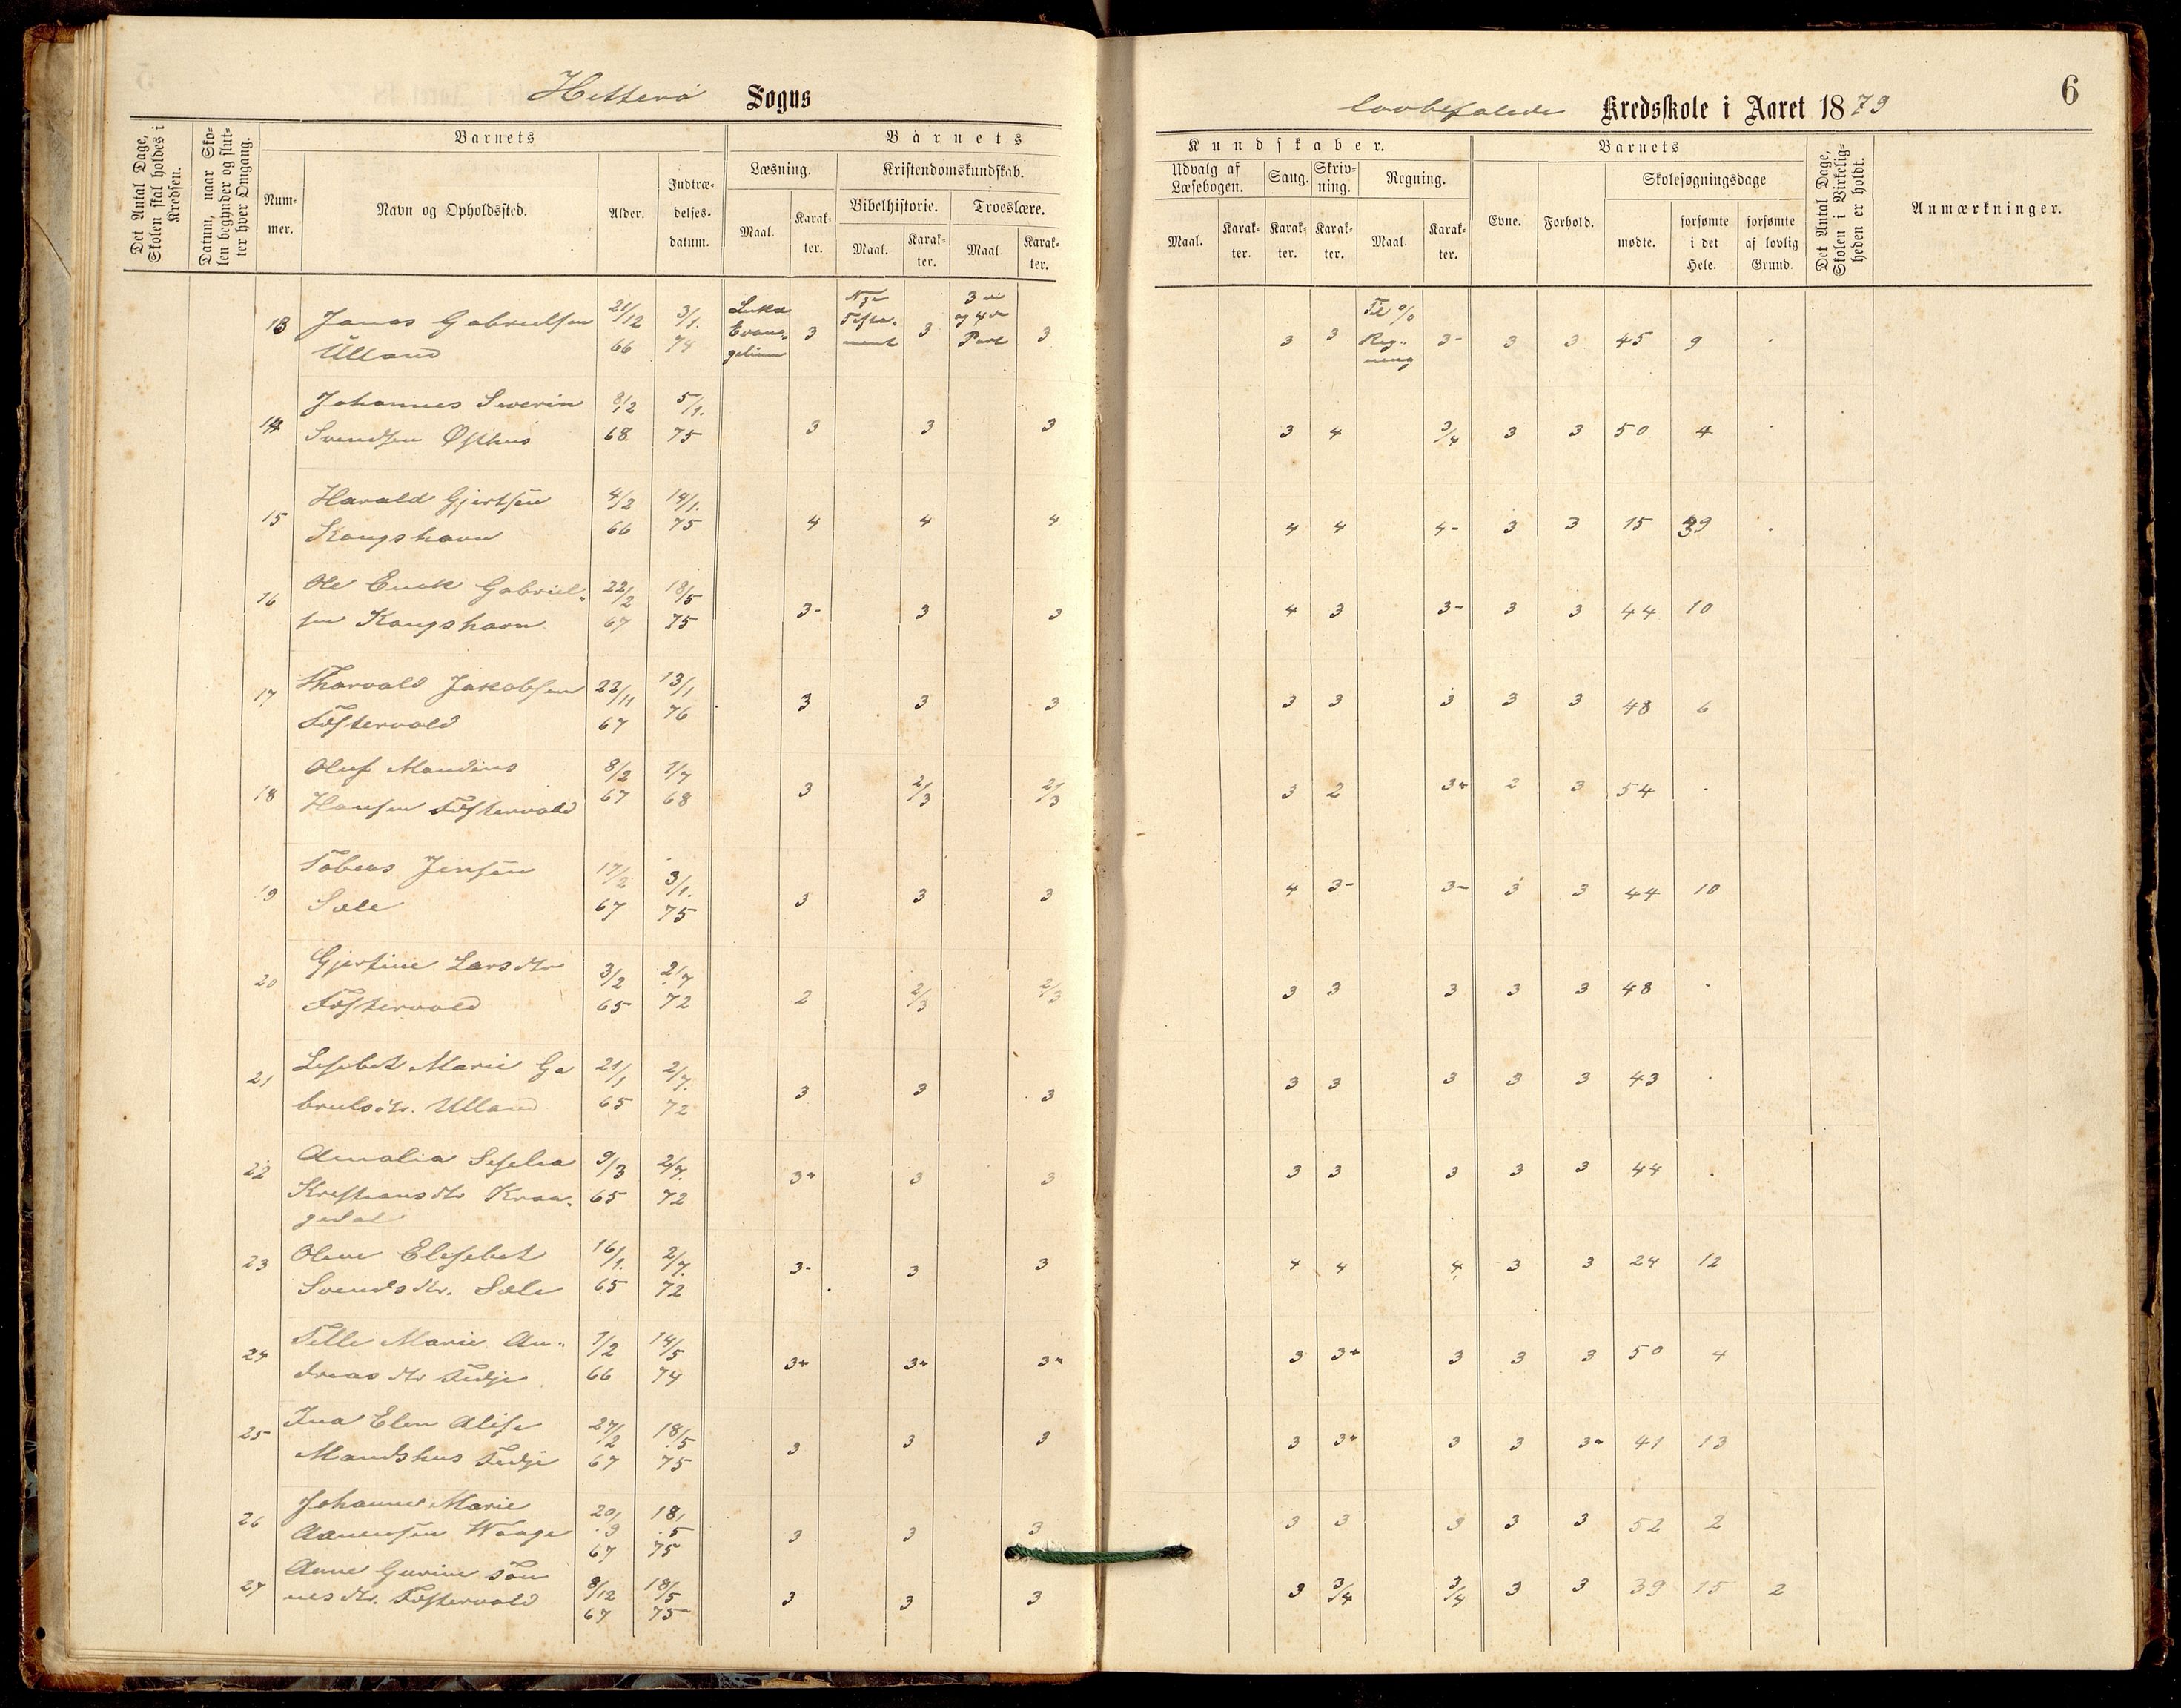 Hetterö Sogns
lovbefalede Kredsskole i Aaret 1879
6
Det Antal Dage, Skolen skal holdes i Kredsen.
Datum, naar Skolen begynder og slutter hver Omgang.
Barnets
Barnets
Kundskaber.
Barnets
Det Antal Dage, Skolen i Virkeligheden er holdt.
Anmærkninger.
Nummer.
Navn og Opholdssted.
Alder.
Indtrædelsesdatum.
Læsning.
Kristendomskundskab.
Udvalg af Læsebogen.
Sang.
Skrivning.
Regning.
Evne.
Forhold.
Skolesøgningsdage
Bibelhistorie.
Troeslære.
Maal.
Karakter.
Maal.
Karakter.
Maal
Karakter.
Maal.
Karakter.
Karakter.
Karakter.
Maal.
Karakter.
mødte.
forsømte i det Hele.
forsømte af lovlig Grund.
13 Jonas Gabrielsen Ulland 21/12 66 3/1. 74 Lukas Evangelium 3 Nye Testament 3 3die og 4de Part 3 3 3 Til % Regning 3- 3 3 45 9 .
14 Johannes Severin Svendsen Østhus 8/12 68. 5/1. 75 3 3 3 3 4 3/4 3 3 50 4 .
15 Harald Gjertsen Kongshavn 4/2 66 14/1. 75 4 4 4 4 4 4- 3 3 15 39 .
16 Ole Enok Gabrielsen Kongshavn 22/2 67 18/5 75 3- 3 3 4 3 3- 3 3 44 10
17 Thorvald Jakobsen Føstervold 22/11 67 13/1 76 3 3 3 3 3 3 3 3 48 6
18 Oluf Mandius Hansen Føstervold 8/2 67 1/7 68 3 2/3 2/3 3 2 3+ 2 3 54 .
19 Tobeas Jensen Sæle 17/2 67 3/1. 75 3 3 3 4 3- 3- 3 3 44 10
20 Gjertine Larsdtr Føstervold 3/2 65 2/7 72 2 2/3 2/3 3 3 3 3 3 48 .
21 Lisebet Marie Gabrielsdtr. Ulland 21/1 65 2/7. 72 3 3 3 3 3 3 3 3 43 .
22 Amalia Seselia Kristiansdtr Kraagedal 9/3 65 2/7. 72 3+ 3 3 3 3 3 3 3 44 .
23 Olene Elisebet Svendsdtr. Sæle 16/1. 65 2/7. 72 3- 3 3 4 4 4 3 3 24 12
24 Telle Marie Andreasdtr Tidje 1/2 66 14/5 74 3+ 3+ 3+ 3 3+ 3 3 3 50 4
25 Ina Elen Alise Mandshus Tidje 27/2 67 18/5 75 3 3 3 3 3+ 3 3 3+ 41 13
26 Johanne Marie Aanensen Waage 20/9 67 18/5 75 3 3 3 3 3 3 3 3 52 2
27 Anne Gurine Tønnesdtr. Føstervold 8/12 67 18/5 75 3 3 3 3 3/4 3/4 3 3 39 15 2